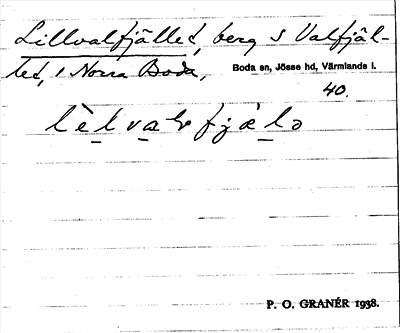 Lillvalfjället, berg S Valfjäl-
let, i Norra Boda,
Boda sn, Jösse hd, Värmlands l.
40.
P. O. GRANÉR 1938.